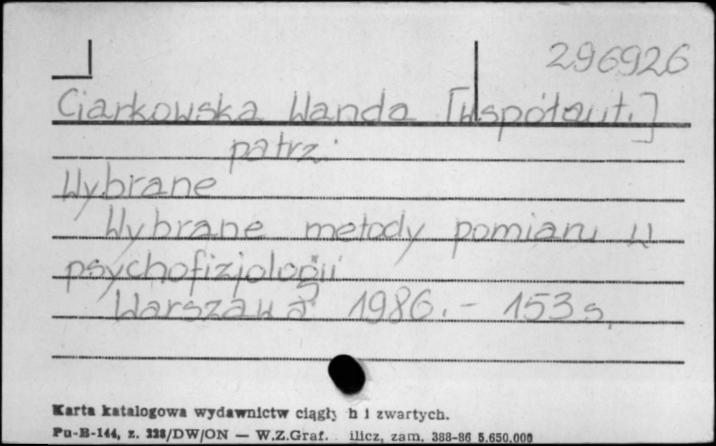 296926
Ciarkowska Wanda [współaut.]
patrz:
Wybrane
Wybrane metody pomiaru w
psychofizjologii
Warszawa 1986. - 153 s.
Karta katalogowa wydawnictw ciągły h i zwartych.
Pu-B-144, z. 228/DW/ON — W.Z.Graf. ilicz, zam. 388-86 5.650.000